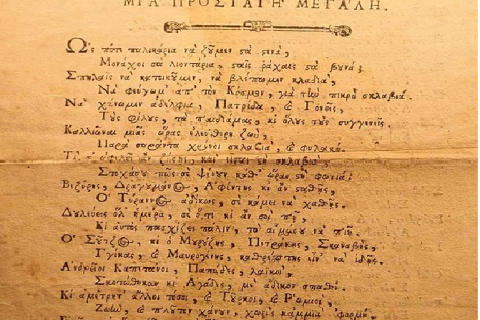 ΜΙΑ ΠΡΟΣΤΑΓΗ ΜΕΓΑΛΗ.
Ὡς πότε παλικάρια νὰ ζοῦμεν στὰ στενά,
Μονάχοι σὰ λιοντάρια, σταῖς ῥάχαις στὰ βουνά;
Σπηλαῖς νὰ κατοικοῦμεν, νὰ βλέπωμεν κλαδιά,
Νὰ φεύγωμ' ἀπ' τὸν Κόσμον, γιὰ τὴν πικρὴ σκλαβιά.
Νὰ χάνωμεν ἀδέλφια, Πατρίδα, & Γονεῖς,
Τοὺς φίλους, τὰ παιδιά μας, κι ὅλους τοὺς συγγενεῖς.
Καλλιῶναι μιᾶς ὥρας ἐλεύθερη ζωή,
Παρὰ σαράντα χρόνοι σκλαβιά, & φυλακή.
Τί σ' ὠφελεῖ ἂν ζήσῃς, καὶ εἶσαι στὴ σκλαβιά,
Στοχάσου πῶς σὲ ψένουν καθ' ὥραν στὴ φωτιά;
Βιζύρης, Δραγουμάνος, Ἀφέντης κι ἂν σταθῇς,
Ὁ Τύραννος ἀδίκως, σὲ κάμει νὰ χαθῇς.
Δουλεύεις ὅλ' ἡμέρα, σὲ ὅ,τι κι ἂν σοὶ πῇ,
Κι αὐτὸς πασχίζει πάλιν, τὸ αἷμα σου νὰ πιῇ.
Ὁ Σοῦτζος, κι ὁ Μουρούζης, Πετράκης, Σκαναβῆς,
Γγίκας, & Μαυρογένης, καθρέπτης εἶν' νὰ ἰδῇς.
Ἀνδρεῖοι Καπιτάνοι, Παπᾶδες, λαϊκοί,
Σκοτώθηκαν κι Ἀγάδες, μὲ ἄδικον σπαθί.
Κι ἀμέτρητ' ἄλλοι τόσοι, & Τοῦρκοι, & Ῥωμιοί,
Ζωήν, & πλοῦτον χάνουν, χωρὶς καμμιὰ ἀφορμή.